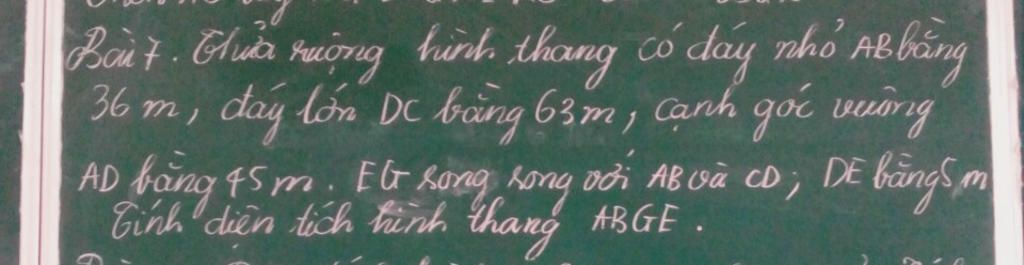 Bài 7. Thửa ruộng hình thang có đáy nhỏ AB bằng
36 m, đáy lớn DC bằng 63 m, cạnh góc vuông
AD bằng 45 m. EG song song với AB và CD; DE bằng 5 m
Tính diện tích hình thang ABGE.